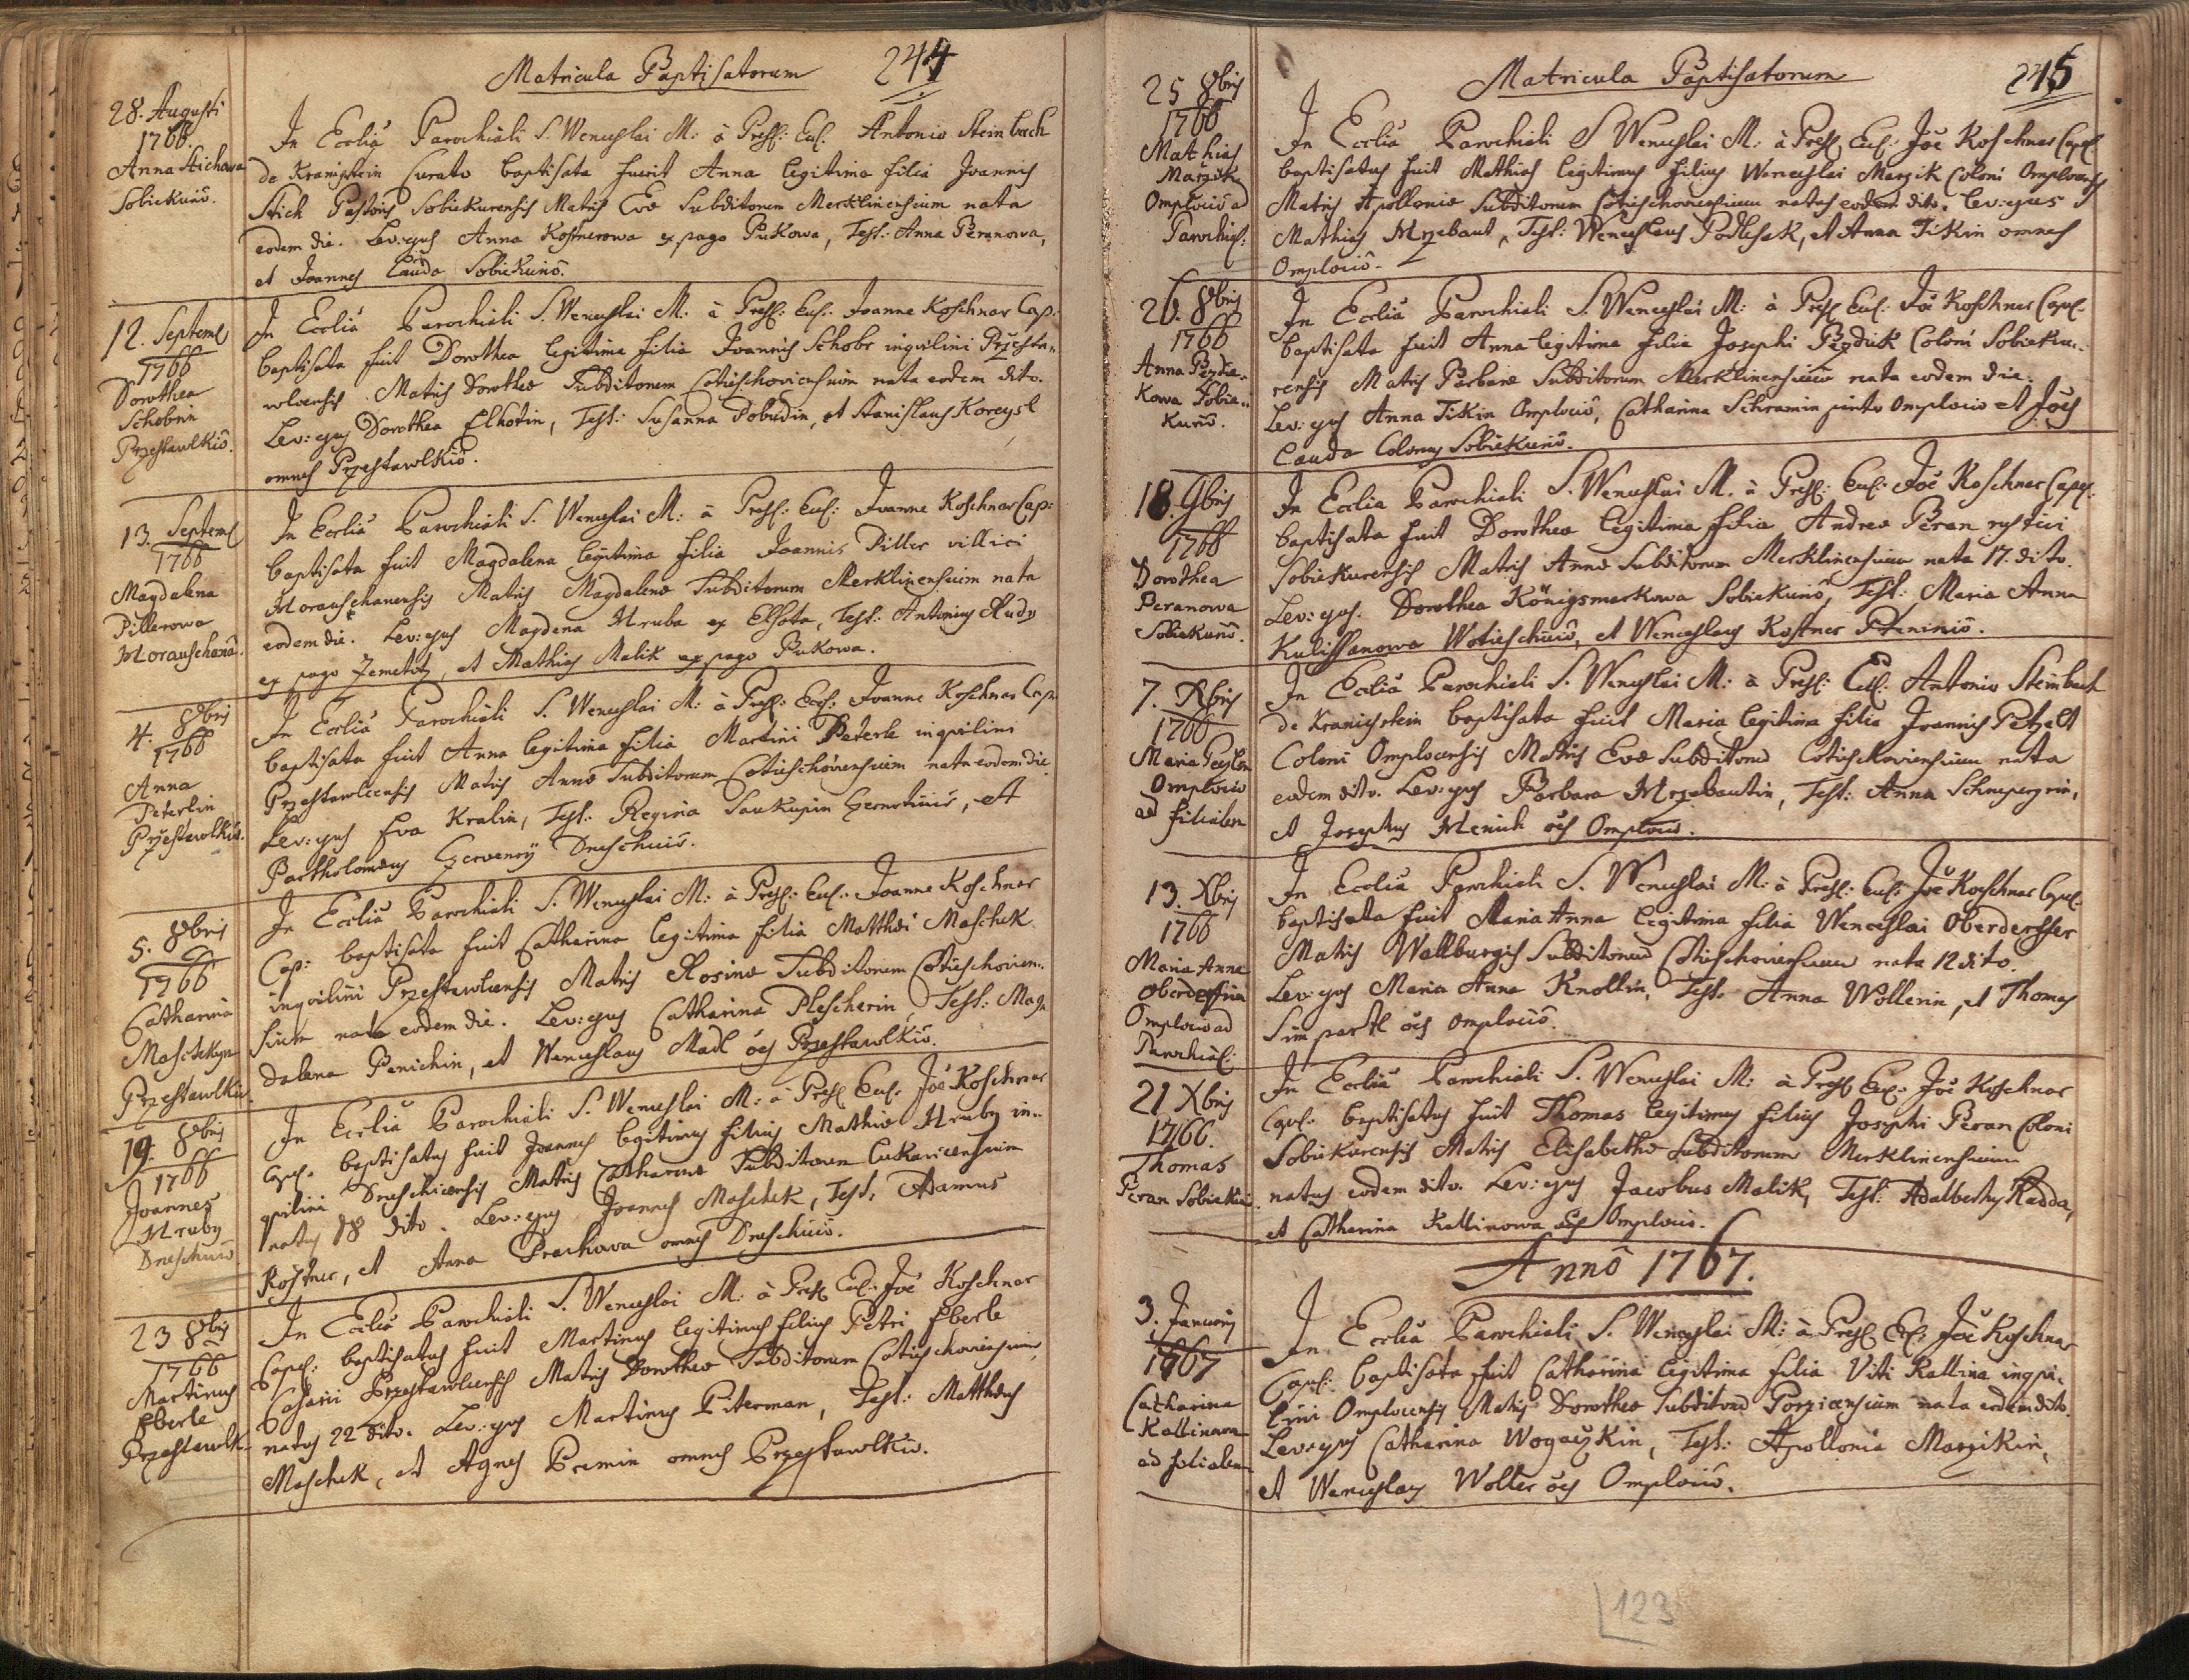 Matricula Baptisatorum 244
28. Augusti
1766.
Anna Stichowa
Sobiekuriô.
In Ecclia Parochiali S. Wenceslai M: à Præs: Eccl: Antonio Steinbach
de Kranichstein Curato baptisata fuit Anna legitima filia Joannis
Stich Pastoris Sobiekurensis Matris Evæ Subditorum Merklinensium nata
eodem die. Lev: ejus Anna Kostnerowa ex pago Pukowa, Test: Anna Peranowa,
et Joannes Cauda Sobiekuriô.
12. Septem
1766
Dorothea
Schobrin
Przestawlkiô.
In Ecclia Parochiali S. Wenceslai M: à Præs: Eccl: Joanne Koschnar Cap:
baptisata fuit Dorothea legitima filia Joannis Schobr inqvilini Przesta„
wlcensis Matris Dorotheæ Subditorum Cotieschoviensium nata eodem dito.
Lev: ejus Dorothea Elhotin, Test: Susanna Dobudin, et Stanislaus Koreysl
omnes Przestawlkiô.
13. Septem
1766
Magdalena
Pillerowa
Morauschanâ.
In Ecclia Parochiali S. Wenceslai M: à Præs: Eccl: Joanne Koschnar Cap:
baptisata fuit Magdalena legitima filia Joannis Piller villici
Morauschanensis Matris Magdalenæ Subditorum Merklinensium nata
eodem die. Lev: ejus Magdena Hruba ex Elhota, Test: Antonius Rudy
ex pago Zemetitz, et Mathias Malik ex pago Pukowa.
4. 8bris
1766
Anna
Peterlin
Przestawlkiô.
In Ecclia Parochiali S. Wenceslai M: à Præs: Eccl: Joanne Koschnar Cap
baptisata fuit Anna legitima filia Martini Peterle inqvilini
Przestawlcensis Matris Annæ Subditorum Cotieschoviensium nata eodem die
Lev: ejus Eva Kralin, Test: Regina Saukupin, et
Bartholomæus Czerwenÿ Dneschiciô.
5. 8bris
1766
Catharina
Maschekyn
Przestawlkiô.
In Ecclia Parochiali S. Wenceslai M: à Præs: Eccl: Joanne Koschnar
Cap: baptisata fuit Catharina legitima filia Matthæi Maschek
inqvilini Przestawlcensis Matris Rosinæ Subditorum Cotieschovien„
sium nata eodem die. Lev: ejus Catharina Plescherin, Test: Mag„
dalena Penichin, et Wenceslaus Madl ôes Przestawlkiô.
19. 8bris
1766
Joannes
Hruby
Dneschiciô
In Ecclia Parochiali S. Wenceslai M: à Præs: Eccl: Joê Koschnar
Capel: baptisatus fuit Joannes legitimus filius Mathiæ Hruby in„
qvilini Dneschicensis Matris Catharinæ Subditorum Lukavicensium
natus 18 dito. Lev: ejus Joannes Maschek, Test: Adamus
Kostner, et Anna Prachowa omnes Dneschiciô.
23 8bris
1766
Martinus
Eberle
Przestawlk
In Ecclia Parochiali S. Wenceslai M: à Præs: Eccl: Joê Koschnar
Capel: baptisatus fuit Martinus legitimus filius Petri Eberle
Casarii Przestawlcensis Matris Dorotheæ Subditorum Cotieschoviensium
natus 22 dito. Lev: ejus Martinus Piterman, Test: Matthæus
Maschek, et Agnes Premin omnes Przestawlkiô.
Matricula Baptisatorum 245
25 8bris
1766
Mathias
Marzik
Omplociô ad
Parochial:
In Ecclia Parochiali S Wenceslai M: à Præs: Eccl: Joê Koschnar Capel:
baptisatus fuit Mathias legitimus filius Wenceslai Marzik Coloni Omplocensis
Matris Apolloniæ Subditorum Cotieschoviensium natus eodem dito. Lev: ejus
Mathias Hrzebaut, Test: Wenceslaus Podlesak, et Anna Tikin omnes
Omplociô.
26. 8bris
1766
Anna Pezdie„
kowa Sobie„
kuriô.
In Ecclia Parochiali S. Wenceslai M: à Præs: Eccl: Joê Koschnar Capel:
baptisata fuit Anna legitima filia Josephi Pezdiek Coloni Sobieku„
rensis Matris Barbaræ Subditorum Merklinensium nata eodem die.
Lev: ejus Anna Tikin Omplociô, Catharina Schramin Omplociô et Joês
Cauda Colonus Sobiekuriô.
18. 9bris
1766
Dorothea
Peranowa
Sobiekuriô.
In Ecclia Parochiali S. Wenceslai M. à Præs: Eccl: Joê Koschnar Capel:
baptisata fuit Dorothea legitima filia Andreæ Peran rustici
Sobiekurensis Matris Annæ Subditorum Merklinensium nata 17. dito.
Lev: ejus. Dorothea Königsmarkowa Sobiekuriô, Test: Maria Anna
Kulissanowa Wotieschiciô, et Wenceslaus Kostner Pteniniô.
7. Xbris
1766
Maria
Omplociô
ad filialem
In Ecclia Parochiali S. Wenceslai M: à Præs: Eccl: Antonio Steinbach
de Kranichstein baptisata fuit Maria legitima filia Joannis Petzelt
Coloni Omplocensis Matris Evæ Subditorum Cotieschoviensium nata
eodem dito. Lev: ejus Barbara Hrzebautin, Test: Anna Schneperzrin,
et Josephus Menich ôes Omplociô.
13. Xbris
1766
Maria Anna
Oberdessrin
Omplociô ad
Parochial:
In Ecclia Parochiali S. Wenceslai M: à Præs: Eccl: Joê Koschnar Capel:
baptisata fuit Maria Anna legitima filia Wenceslai Oberdersser
Matris Wallburgis Subditorum Cotieschoviensium nata 12 dito.
Lev: ejus Maria Anna Knollin, Test: Anna Wollerin, et Thomas
Simpartl ôes Omplociô.
21 Xbris
1766.
Thomas
Peran Sobiekuri
In Ecclia Parochiali S. Wenceslai M: à Præs: Eccl: Joê Koschnar
Capel: baptisatus fuit Thomas legitimus filius Josephi Peran Coloni
Sobiekurensis Matris Elisabethæ Subditorum Merklinensium
natus eodem dito. Lev: ejus Jacobus Malik, Test: Adalbertus Kadda,
et Catharina Kallinowa ôes Omplociô.
Annô 1767.
3. Januarij
1767
Catharina
Kallinowa
ad filialem
In Ecclia Parochiali S. Wenceslai M: à Præs: Eccl: Joê Koschnar
Capel: baptisata fuit Catharina legitima filia Viti Kallina inqvi„
lini Omplocensis Matris Dorotheæ Subditorum Porzicensium nata eodem dito.
Lev: ejus Catharina Wogaczkin, Test: Apollonia Marzikin,
et Wenceslaus Wolter ôes Omplociô.
123